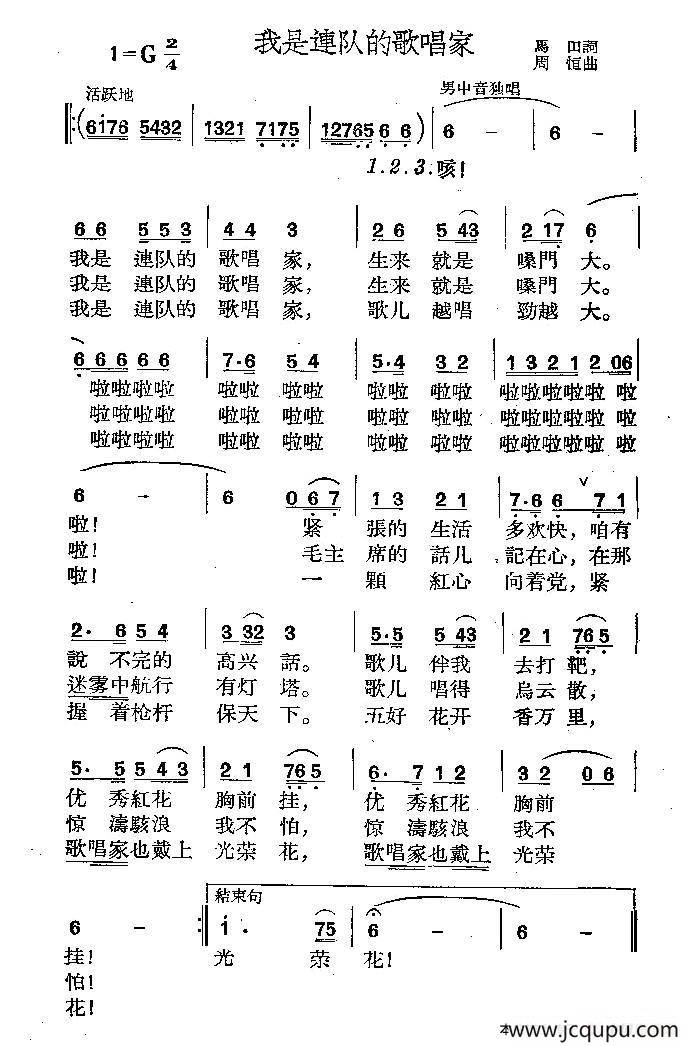 我是連队的歌唱家
1=G 2/4
馬田詞
周恒曲
活跃地
男中音独唱
(6176 5432 1321 7175 12765 6 6) 6 - 6 -
1.2.3.咳!
6 6 5 5 3 4 4 3 2 6 5 43 2 17 6
我是 連队的 歌唱 家, 生来 就是 嗓門 大。
我是 連队的 歌唱 家, 生来 就是 嗓門 大。
我是 連队的 歌唱 家, 歌儿 越唱 勁越 大。
6 6 6 6 6 7·6 5 4 5·4 3 2 1 3 2 1 2 06
啦啦啦啦 啦啦 啦啦 啦啦 啦啦 啦啦啦啦啦 啦
啦啦啦啦 啦啦 啦啦 啦啦 啦啦 啦啦啦啦啦 啦
啦啦啦啦 啦啦 啦啦 啦啦 啦啦 啦啦啦啦啦 啦
6 - 6 0 6 7 1 3 2 1 7·6 6 V 7 1
啦! 紧 張的 生活 多欢快, 咱有
啦! 毛主 席的 話儿 記在心, 在那
啦! 一 顆 紅心 向着党, 紧
2· 6 5 4 3 32 3 5·5 5 43 2 1 76 5
說 不完的 高兴 話。 歌儿 伴我 去打 靶,
迷雾中航行 有灯 塔。 歌儿 唱得 烏云 散,
握 着枪杆 保天 下。 五好 花开 香万 里,
5· 5 5 4 3 2 1 76 5 6· 7 1 2 3 2 0 6
优 秀紅花 胸前 挂, 优 秀紅花 胸前
惊 濤駭浪 我不 怕, 惊 濤駭浪 我不
歌唱家也戴上 光荣 花, 歌唱家也戴上 光荣
結束句
6 - 1· 75 6 - 6 -
挂! 光 荣 花!
怕!
花!
www.jcqupu.com